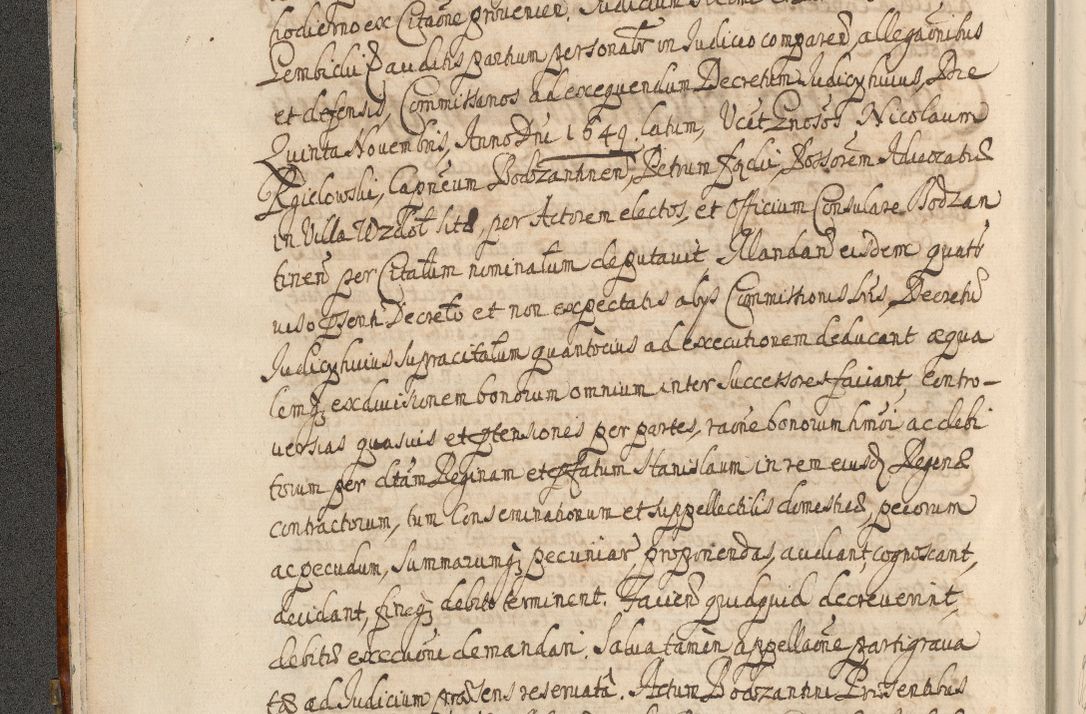 hodierno ex Citaōne provenien. Judicium
Lembicii auditis partium personalr in Judicio comparen, allegaōnibus
et defensis, Commissarios ad exequendum Decretum Judicy huius, Die
Quinta Novembris, Anno Dni 1649. latum, Vcet Gnosos Nicolaum
Rgielowski, Capneum Bodzantinen, Petrum, Possorem Advocatiæ
in Villa Wzdol sitæ, per Actorem electos, et Officium Consulare Bodzan
tinen per Citatum nominatum deputavit. Mandan eisdem quatr
viso pſenti Decreto et non expectatis alijs Commissionis Lris, Decretū
Judicy huius supracitatum quantocius ad executionem deducant æqua
lemq; ex divisionem bonorum omnium inter Successores faciant, Contro-
versias quasvis et ptensiones per partes, raōne bonorum hmōi ac debi
torum per dtam Reginam et pfatum Stanislaum in rem eiusd Reginæ
contractorum, tum Conseminationum et suppellectilis domesticæ, pecorum
ac pecudum, Summarumq; pecuniar, proponendas, audiant, cognoscant,
decidant, fineq; debito terminent. Facien quidquid decreverint,
debitæ execuōni demandari. Salva tamen appellaōne parti grava
tæ ad Judicium præsens reservata. Actum Bodzantini Præsentibus